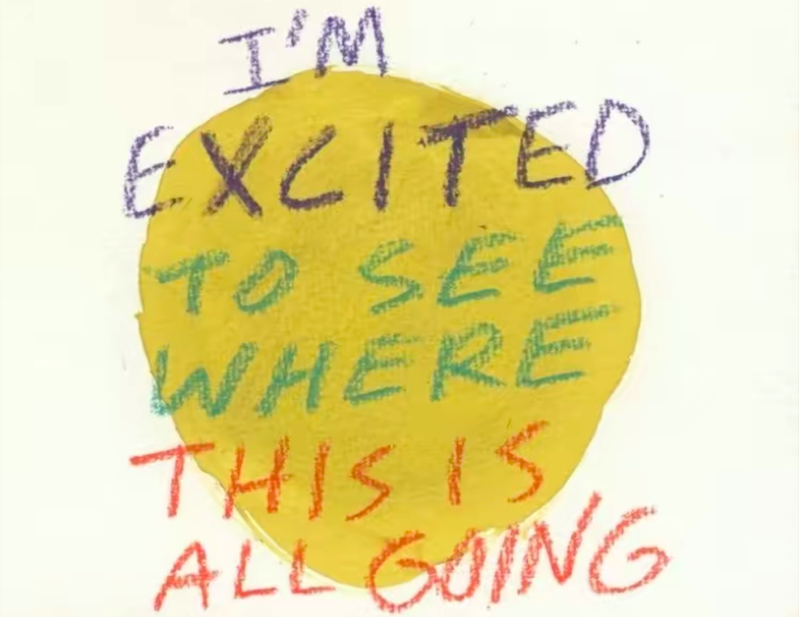 I'M
EXCITED
TO SEE
WHERE
THIS IS
ALL GOING